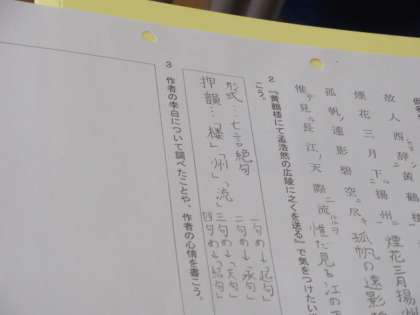 故人西辞黄鶴楼
煙花三月下揚州
孤帆遠影碧空尽
惟見長江天際流
煙花三月揚州
孤帆の遠影
惟だ見る江の
2 『黄鶴楼にて孟浩然の広陵に之くを送る』で気をつけたい
こう。
形式…七言絶句
押韻…「楼」「州」「流」
一句め→「起句」
二句め→「承句」
三句め→「転句」
四句め→「結句」
3 作者の李白について調べたことや、作者の心情を書こう。